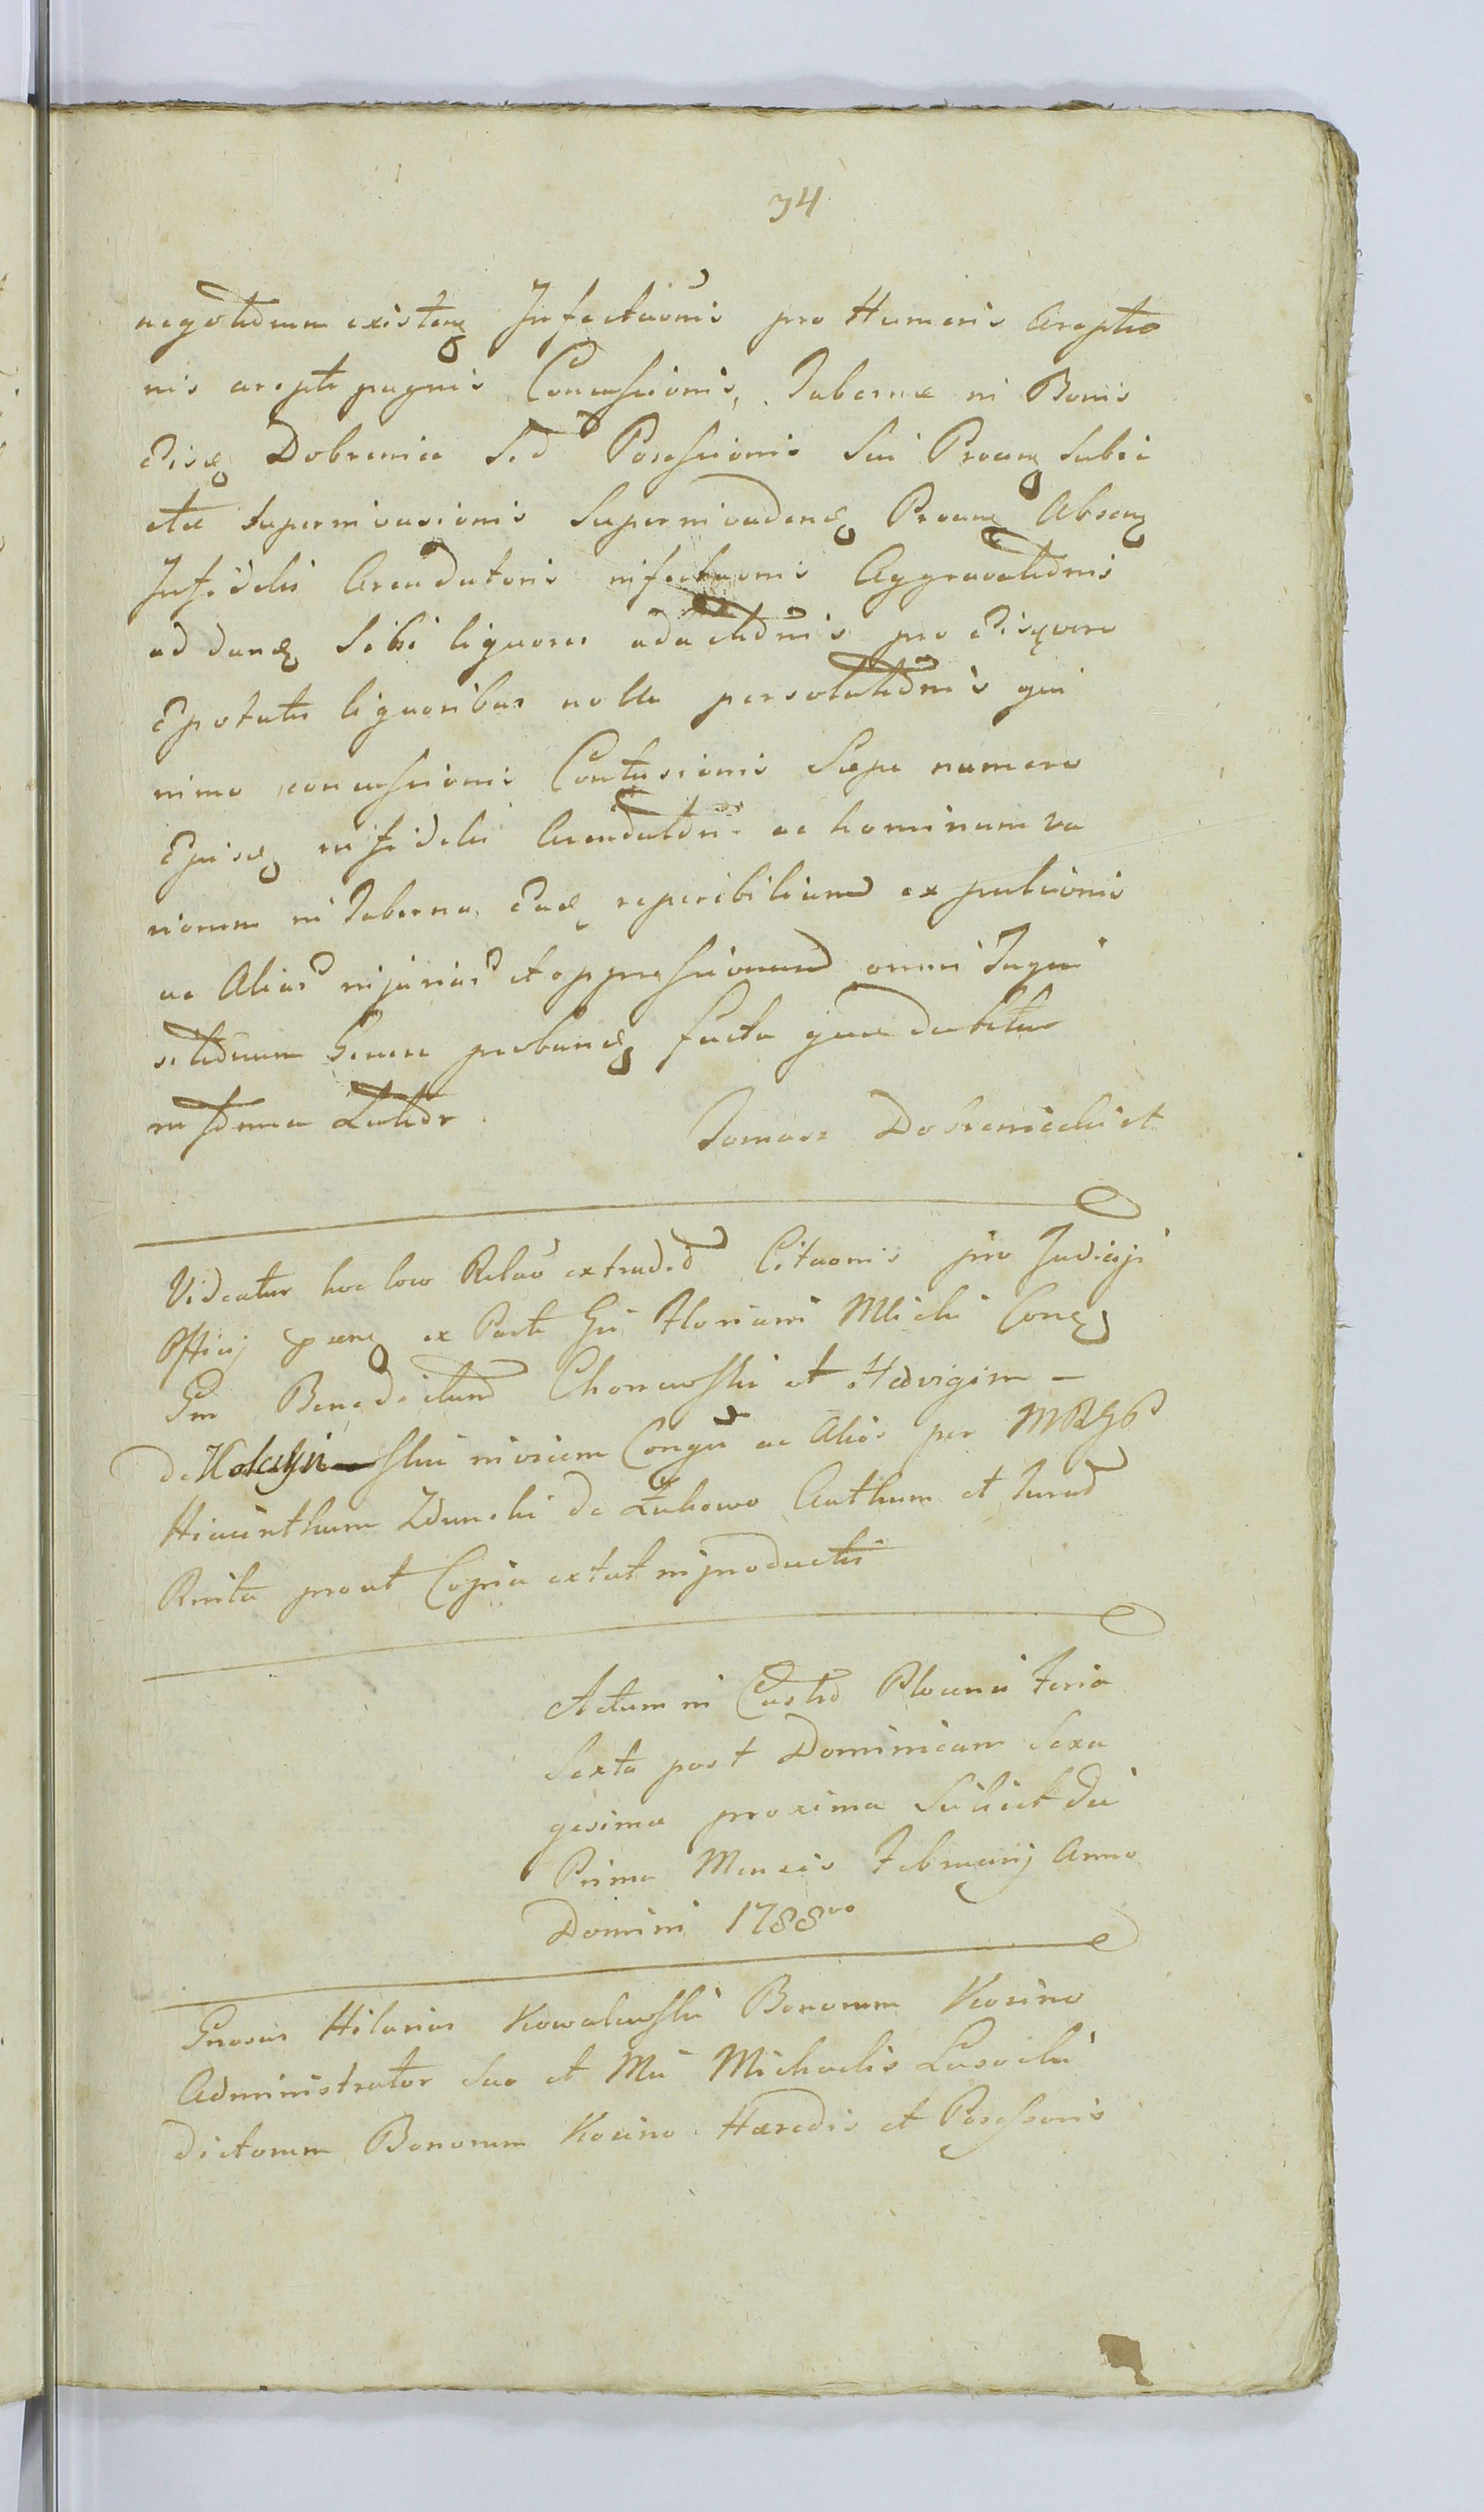 34
negotiorum existen Infectionis pro Humeris Arreptio
nis arepte pugnis Concussionis, Tabernæ in Bonis
Eisd Dobrenice Sed Possessionis Sui Procuñ Subie
ctæ superinvasionis Superinvaden Procuñ Absen
Infidelis Arendatoris infectionis Aggravationis
ad dand Sibi liquores adactionis pro Eisq vero
Epotatis liquoribus nolle persolutionis qui
nimo concussionis Contusionis Sæpe numero
Ejusd infidelis Arendatoris ac hominum va
riorum in Taberna Ead reperibilium expulsionis
ac Alias injurias et oppressionum omni Inqui
sitionum Genere proband facta quæ debetur
in forma Latior
Tomasz Dobrzenicki et
Videatur hoc loco Relao extradid Citaonis pro Judicÿs
Officÿ ex Parte Gsi Floriani Mlicki Con
Gm Benedictum Chonewski et Hedvigim –
de Kolczyn ski invicem Conges ac Alios per MRGP
Hiacinthum Zdunski de Żukowo Authum et Jurad
Rnita prout Copia extat in productis
Actum in Castro Plocensi Feria
Sexta post Dominicam Sexa
gesimæ proxima Scilicet die
Prima Mensis Februarÿ Anno
Domini 1788vo
Gnosus Hilarius Kowalewski Bonorum Kosino
Administrator Suo et Mci Michaelis Lasocki
dictorum Bonorum Kosino Hæredis et Possessoris